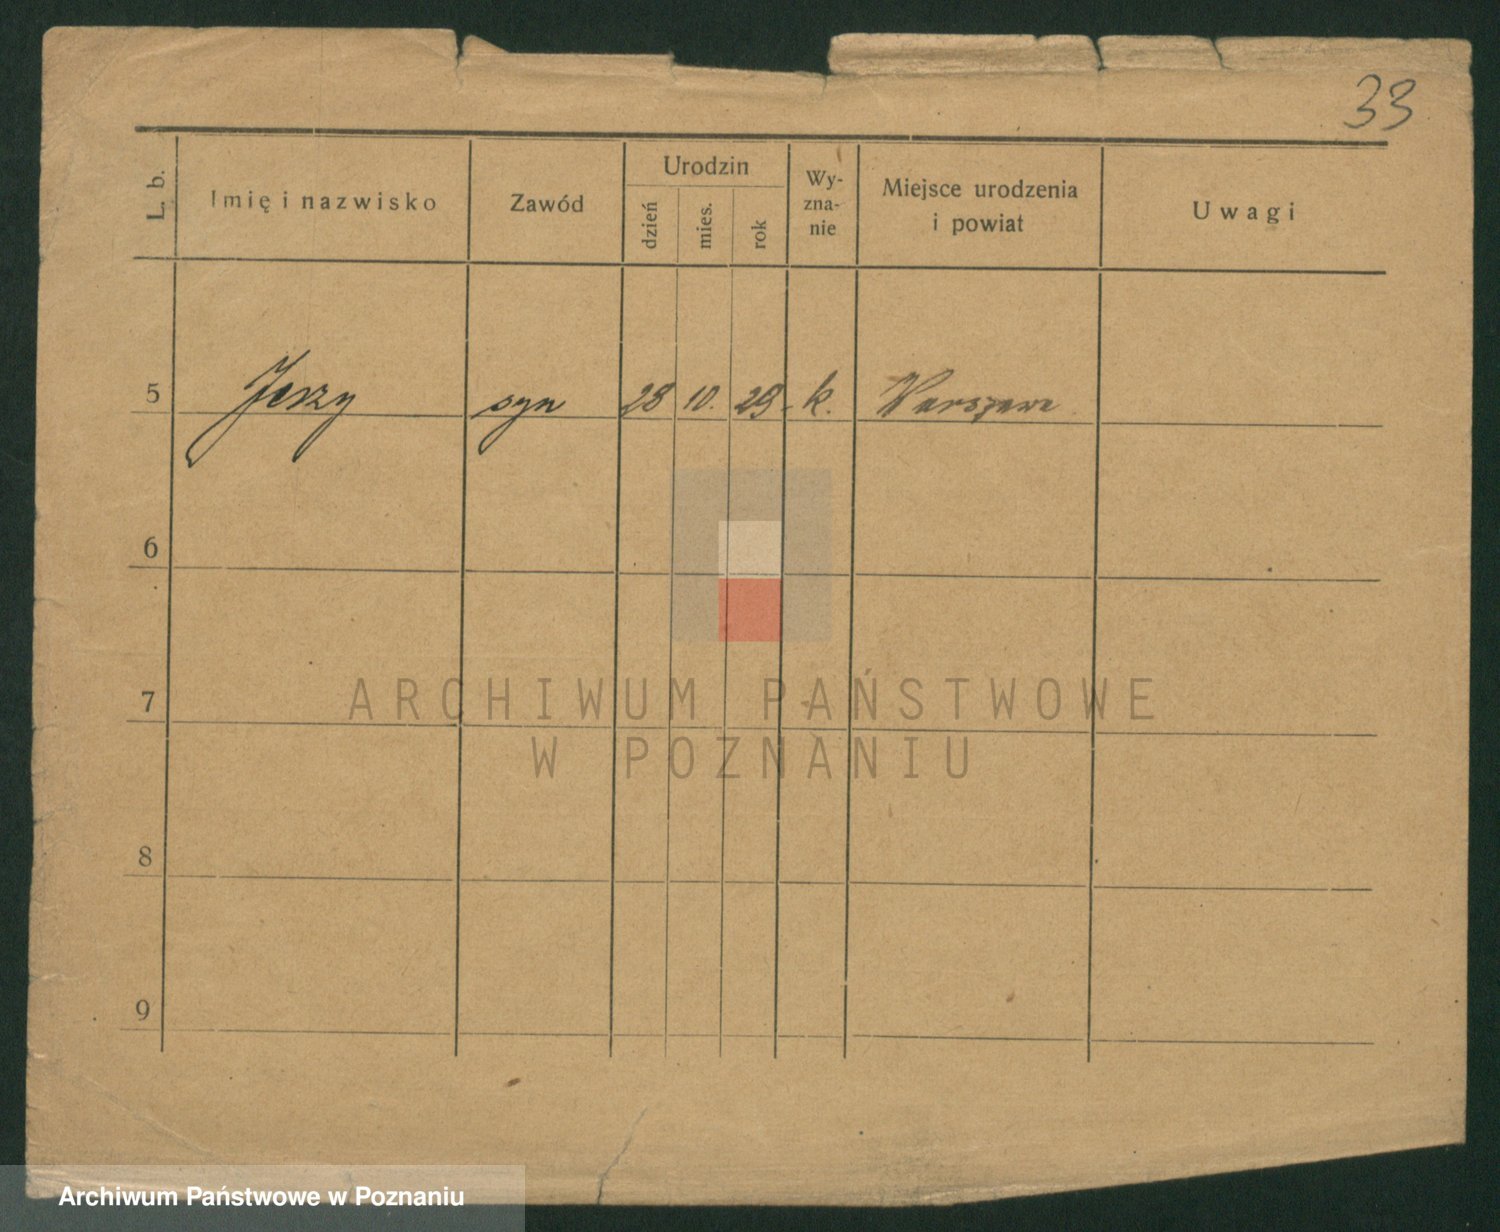 33
L. b.
Imię i nazwisko
Zawód
Urodzin
dzień
mies.
rok
Wy-
zna-
nie
Miejsce urodzenia
i powiat
Uwagi
5 Jerzy syn 28 10. 29. k. Warszawa
6
7
8
9
ARCHIWUM PAŃSTWOWE
W POZNANIU
Archiwum Państwowe w Poznaniu